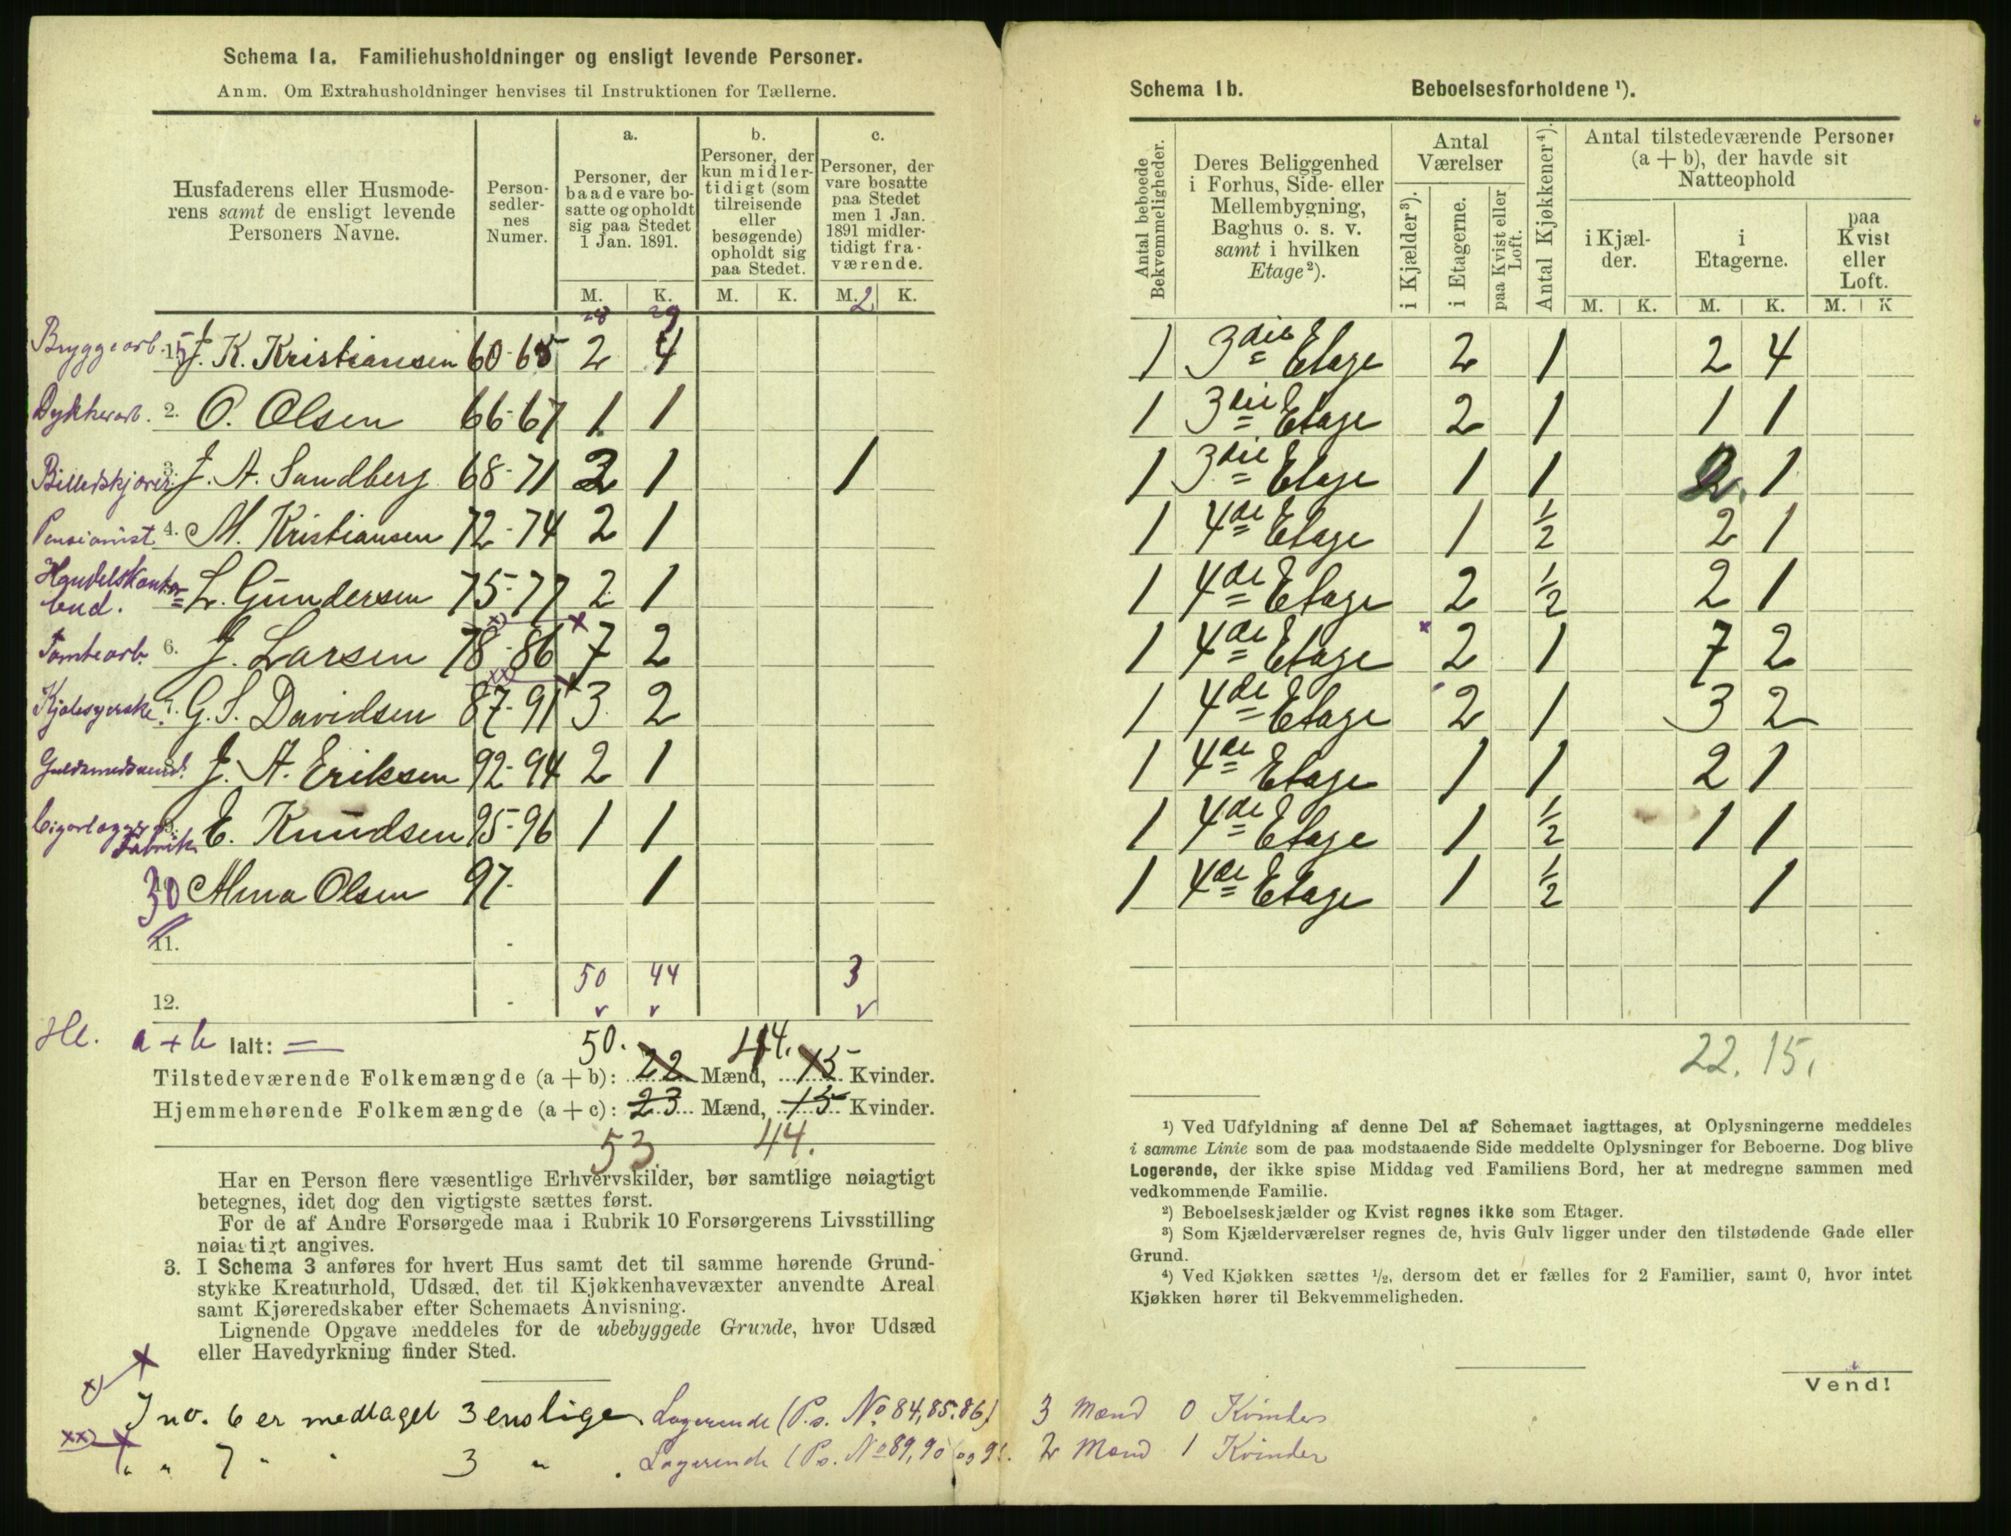 Schema 1a. Familiehusholdninger og ensligt levende Personer.
Anm. Om Extrahusholdninger henvises til Instruktionen for Tællerne.
Husfaderens eller Husmoderens samt de ensligt levende Personers Navne.
Person-sedler-nes Numer.
a.
Personer, der baade vare bosatte og opholdt sig paa Stedet 1 Jan. 1891.
b.
Personer, der kun midlertidigt (som tilreisende eller besøgende) opholdt sig paa Stedet.
c.
Personer, der vare bosatte paa Stedet men 1 Jan. 1891 midlertidigt fraværende.
M. K. M. K. M. K.
28 29 2
Bryggearb. 15 J. K. Kristiansen 60-65 2 4
Dykkerarb. 2. O. Olsen 66-67 1 1
Billedskjærer 3. J. A. Sandberg 68-71 2 1 1
Pensionist 4. M. Kristiansen 72-74 2 1
Handelskontor
bud. L. Gundersen 75-77 2 1
Tomtearb. 6. J. Larsen 78-86 7 2
Kjolesyerske 7. G. S. Davidsen 87-91 3 2
Guldsmedsvend. J. A. Eriksen 92-94 2 1
Fabrik E. Knudsen 95-96 1 1
30 Alma Olsen 97- 1
11. -
50 44 3
12. -
a + b Ialt: =
50. 44.
Tilstedeværende Folkemængde (a + b): 22 Mænd, 15 Kvinder.
Hjemmehørende Folkemængde (a + c): 23 Mænd, 15 Kvinder.
53 44.
Har en Person flere væsentlige Erhvervskilder, bør samtlige nøiagtigt
betegnes, idet dog den vigtigste sættes først.
For de af Andre Forsørgede maa i Rubrik 10 Forsørgerens Livsstilling
nøiagtigt angives.
3. I Schema 3 anføres for hvert Hus samt det til samme hørende Grund-
stykke Kreaturhold, Udsæd, det til Kjøkkenhavevæxter anvendte Areal
samt Kjøreredskaber efter Schemaets Anvisning.
Lignende Opgave meddeles for de ubebyggede Grunde, hvor Udsæd
eller Havedyrkning finder Sted.
x) I no. 6 er medtaget 3 enslige Logerende (Ps. No 84, 85, 86) 3 Mænd 0 Kvinder
xx) " " 7 " " 3 " . Logerende (Ps. No 89, 90 og 91. 2 Mænd 1 Kvinder
Schema 1b. Beboelsesforholdene ¹).
Antal beboede Bekvemmeligheder.
Deres Beliggenhed i Forhus, Side- eller Mellembygning, Baghus o. s. v. samt i hvilken Etage ²).
Antal Værelser
i Kjælder ³).
i Etagerne.
paa Kvist eller Loft.
Antal Kjøkkener ⁴).
Antal tilstedeværende Personer (a + b), der havde sit Natteophold
i Kjælder.
i Etagerne.
paa Kvist eller Loft.
M. K. M. K. M. K
1 3die Etage 2 1 2 4
1 3die Etage 2 1 1 1
1 3die Etage 1 1 2. 1
1 4de Etage 1 ½ 2 1
1 4de Etage 2 ½ 2 1
1 4de Etage 2 1 7 2
1 4de Etage 2 1 3 2
1 4de Etage 1 1 2 1
1 4de Etage 1 ½ 1 1
1 4de Etage 1 ½ 1
22. 15.
¹) Ved Udfyldning af denne Del af Schemaet iagttages, at Oplysningerne meddeles
i samme Linie som de paa modstaaende Side meddelte Oplysninger for Beboerne. Dog blive
Logerende, der ikke spise Middag ved Familiens Bord, her at medregne sammen med
vedkommende Familie.
²) Beboelseskjælder og Kvist regnes ikke som Etager.
³) Som Kjælderværelser regnes de, hvis Gulv ligger under den tilstødende Gade eller
Grund.
⁴) Ved Kjøkken sættes ½, dersom det er fælles for 2 Familier, samt 0, hvor intet
Kjøkken hører til Bekvemmeligheden.
Vend!